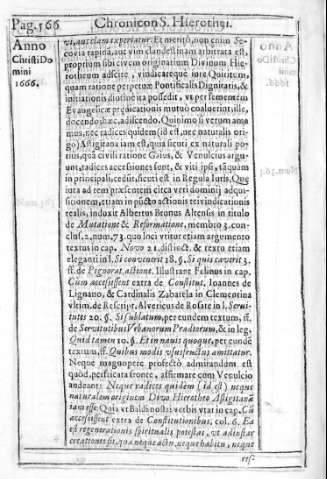 Pag. 566 Chronicon S. Hierothei.
Anno
Christi Do
mini
1666.
vi, aut clam expectatur: Et meritò, non enim Se-
covia rapina, aut vim clandestinam arbitrata est,
proprium sibi civem originarium Divinum Hie-
rotheum adscire, vindicareque iure Quiritum,
quam ratione perpetuæ Pontificalis Dignitatis, &
initiationis diutinæ ita possedit, ut per sementem
Evangelicæ prædicationis mutuò coaluerint, ille,
docendo, hæc, adiscendo. Quinimo si verum ama
mus, nec radices quidem (id est, nec naturalis ori-
go) Astigitana iam est, quia sicuti ex naturali po-
tius, quà civili ratione Gaius, & Venuleius argu-
unt, radices accessiones sunt, & viti ipsi, tâ quam
in principali, cedût, sicuti est in Regula Iuris. Que
iuxta ad rem præsentem circa veri dominij adqui-
sitionem, etiam in pûcto actionis rei vindicationis
realis, induxit Albertus Brunus Altensis in titulo
de Mutatione & Reformatione, membro 3. con-
clus. 2, num. 73. quo loci utitur etiam argumento
textus in cap. Novo 21. distinct. & textu etiam
eleganti in l. Si convenerit 18. §. Si quis caverit 3.
ff. de Pignorat. actione. Illustrant Felinus in cap.
Cum accessissent extra de Constitut. Ioannes de
Lignano, & Cardinalis Zabarela in Clementina
ultim. de Rescript. Alvericus de Rosate in l. Servi-
tutes 20. §. Si sublatum, per eundem textum, ff.
de Servitutibus Urbanorum Prædiorum, & in leg.
Quid tamen 10. §. Et in navis quoque, per eundē
textum, ff. Quibus modis ususfructus amittatur.
Neque magnopere profectò admirandum est
quòd, perfricata fronte, affirmare cum Venuleio
audeant: Neque radices quidem (id est) neque
naturalem originem Divo Hierotheo Astigitanā
iam esse: Quia ut Baldi nostri verbis utar in cap. Cū
accessissent extra de Constitutionibus, col. 6. Ea
est regenerationis spiritualis potestas, ut ad instar
creationis sit, qua neque actu, neque habitu, neque
res-